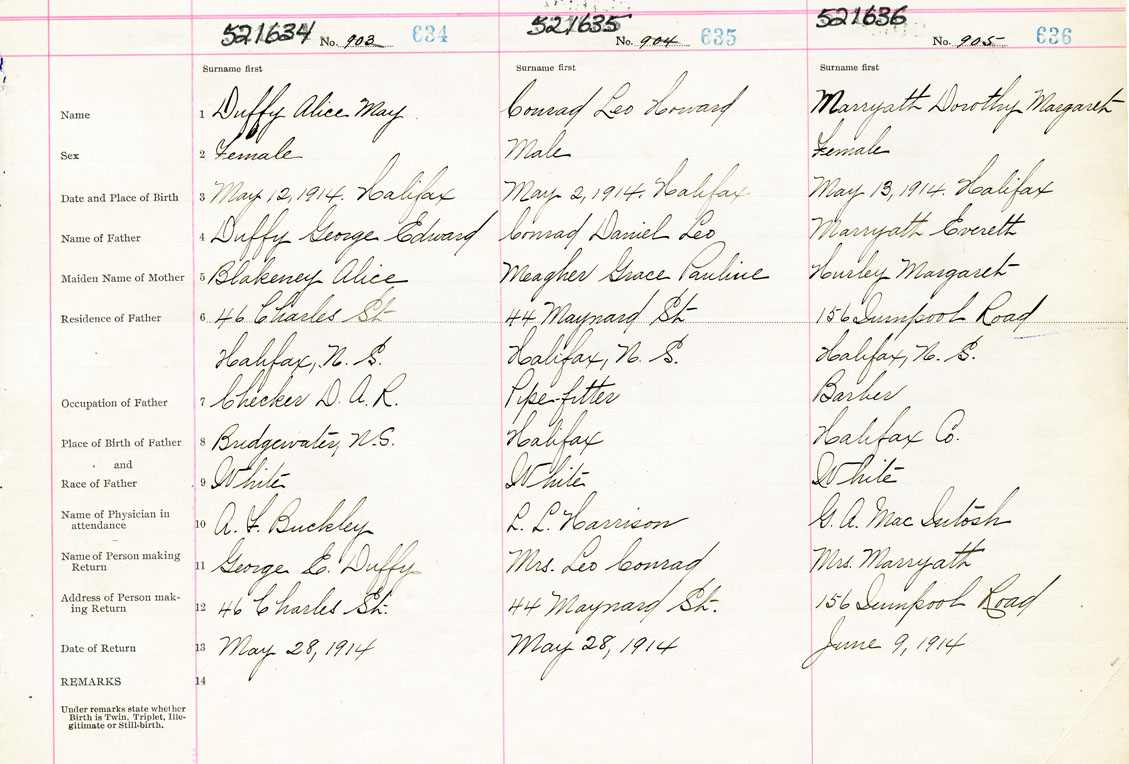 521634 No. 903 634 521635 No. 904 635 521636 No. 905 636
Surname first Surname first Surname first
Name 1 Duffy Alice May Conrad Leo Howard Marryath Dorothy Margaret
Sex 2 Female Male Female
Date and Place of Birth 3 May 12, 1914. Halifax May 2, 1914. Halifax May 13, 1914. Halifax
Name of Father 4 Duffy George Edward Conrad Daniel Leo Marryath Evereth
Maiden Name of Mother 5 Blakeney Alice Meagher Grace Pauline Hurley Margaret
Residence of Father 6 46 Charles St. 44 Maynard St. 156 Road
Halifax, N. S. Halifax, N. S. Halifax, N. S.
Occupation of Father 7 Checker D. A. R. Pipe-fitter Barber
Place of Birth of Father 8 Bridgewater, N.S. Halifax Halifax Co.
and
Race of Father 9 White White White
Name of Physician in
attendance 10 A. F. Buckley L. L. Harrison G. A. Mac Intosh
Name of Person making
Return 11 George E. Duffy Mrs. Leo Conrad Mrs. Marryath
Address of Person mak-
ing Return 12 46 Charles St. 44 Maynard St. 156 Road
Date of Return 13 May 28, 1914 May 28, 1914 June 9, 1914
REMARKS 14
Under remarks state whether
Birth is Twin, Triplet, Ille-
gitimate or Still-birth.